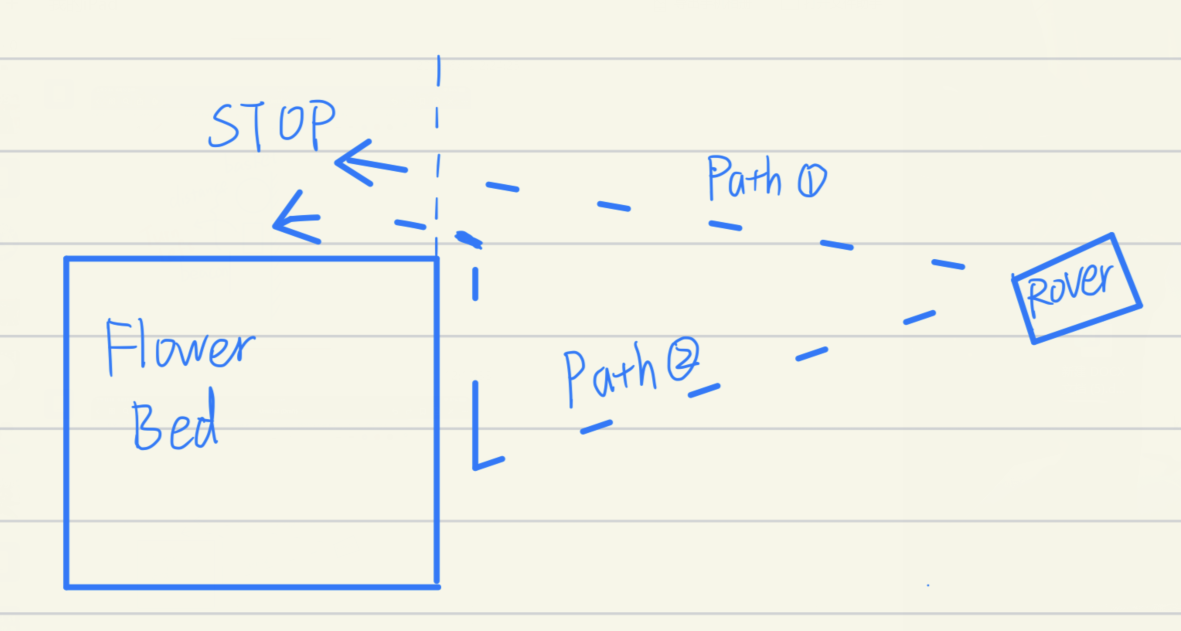 STOP
Path ①
Rover
Flower
Bed
Path ②